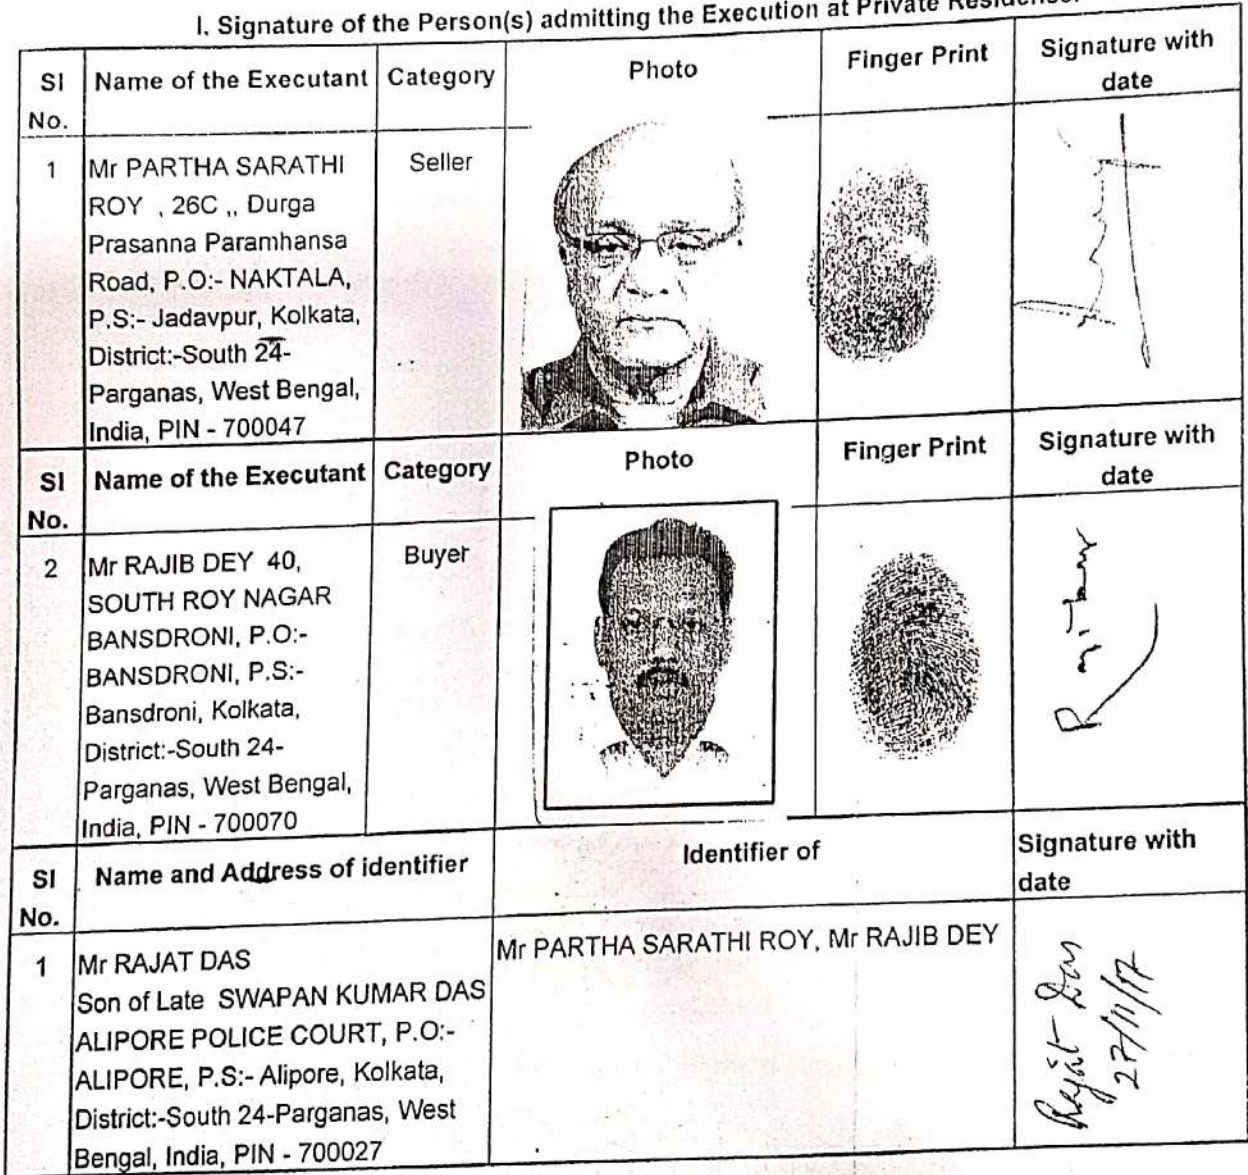 I. Signature of the Person(s) admitting the Execution at Private Residense.
SI No. Name of the Executant Category Photo Finger Print Signature with date
1 Mr PARTHA SARATHI Seller
ROY , 26C ,, Durga
Prasanna Paramhansa
Road, P.O:- NAKTALA,
P.S:- Jadavpur, Kolkata,
District:-South 24-
Parganas, West Bengal,
India, PIN - 700047
SI No. Name of the Executant Category Photo Finger Print Signature with date
2 Mr RAJIB DEY 40, Buyer
SOUTH ROY NAGAR
BANSDRONI, P.O:-
BANSDRONI, P.S:-
Bansdroni, Kolkata,
District:-South 24-
Parganas, West Bengal,
India, PIN - 700070
SI No. Name and Address of identifier Identifier of Signature with date
1 Mr RAJAT DAS
Son of Late SWAPAN KUMAR DAS
ALIPORE POLICE COURT, P.O:-
ALIPORE, P.S:- Alipore, Kolkata,
District:-South 24-Parganas, West
Bengal, India, PIN - 700027
Mr PARTHA SARATHI ROY, Mr RAJIB DEY
Rajat Das
27/11/17